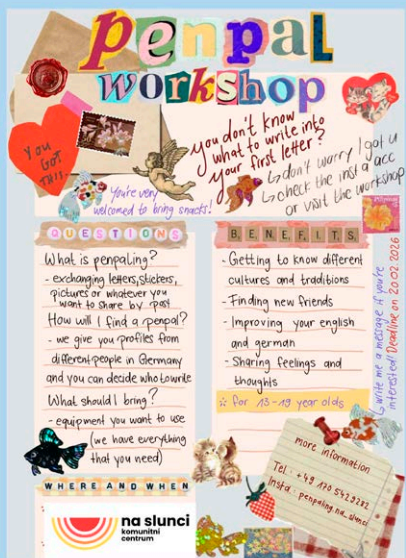 penpal
workshop
you don't know
what to write into
your first letter?
↳ don't worry I got u
↳ check the insta acc
or visit the workshop
YOU
GOT
THIS.
You're very
welcomed to bring snacks!
QUESTIONS
What is penpaling?
- exchanging letters, stickers,
pictures or whatever you
want to share by post
How will I find a penpal?
- we give you profiles from
different people in Germany
and you can decide who to write
What should I bring?
- equipment you want to use
(we have everything
that you need)
BENEFITS
- Getting to know different
cultures and traditions
- Finding new friends
- Improving your english
and german
- Sharing feelings and
thoughts
☆ for 13-19 year olds
↳ write me a message if you're
interested! Deadline on 20.02.2026
WHERE AND WHEN
na slunci
komunitní
centrum
more information
Tel: +49 170 5429282
Insta: penpaling.na_slunci